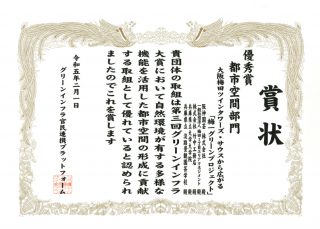 賞状
優秀賞
都市空間部門
大阪梅田ツインタワーズ・サウスから広がる
「梅」グリーンプロジェクト」
阪神電気鉄道株式会社
貴団体の取組は第三回グリーンインフラ
大賞において自然環境が有する多様な
機能を活用した都市空間の形成に貢献
する取組として優れていると認められ
ましたのでこれを賞します
令和五年二月一日
グリーンインフラ官民連携プラットフォーム